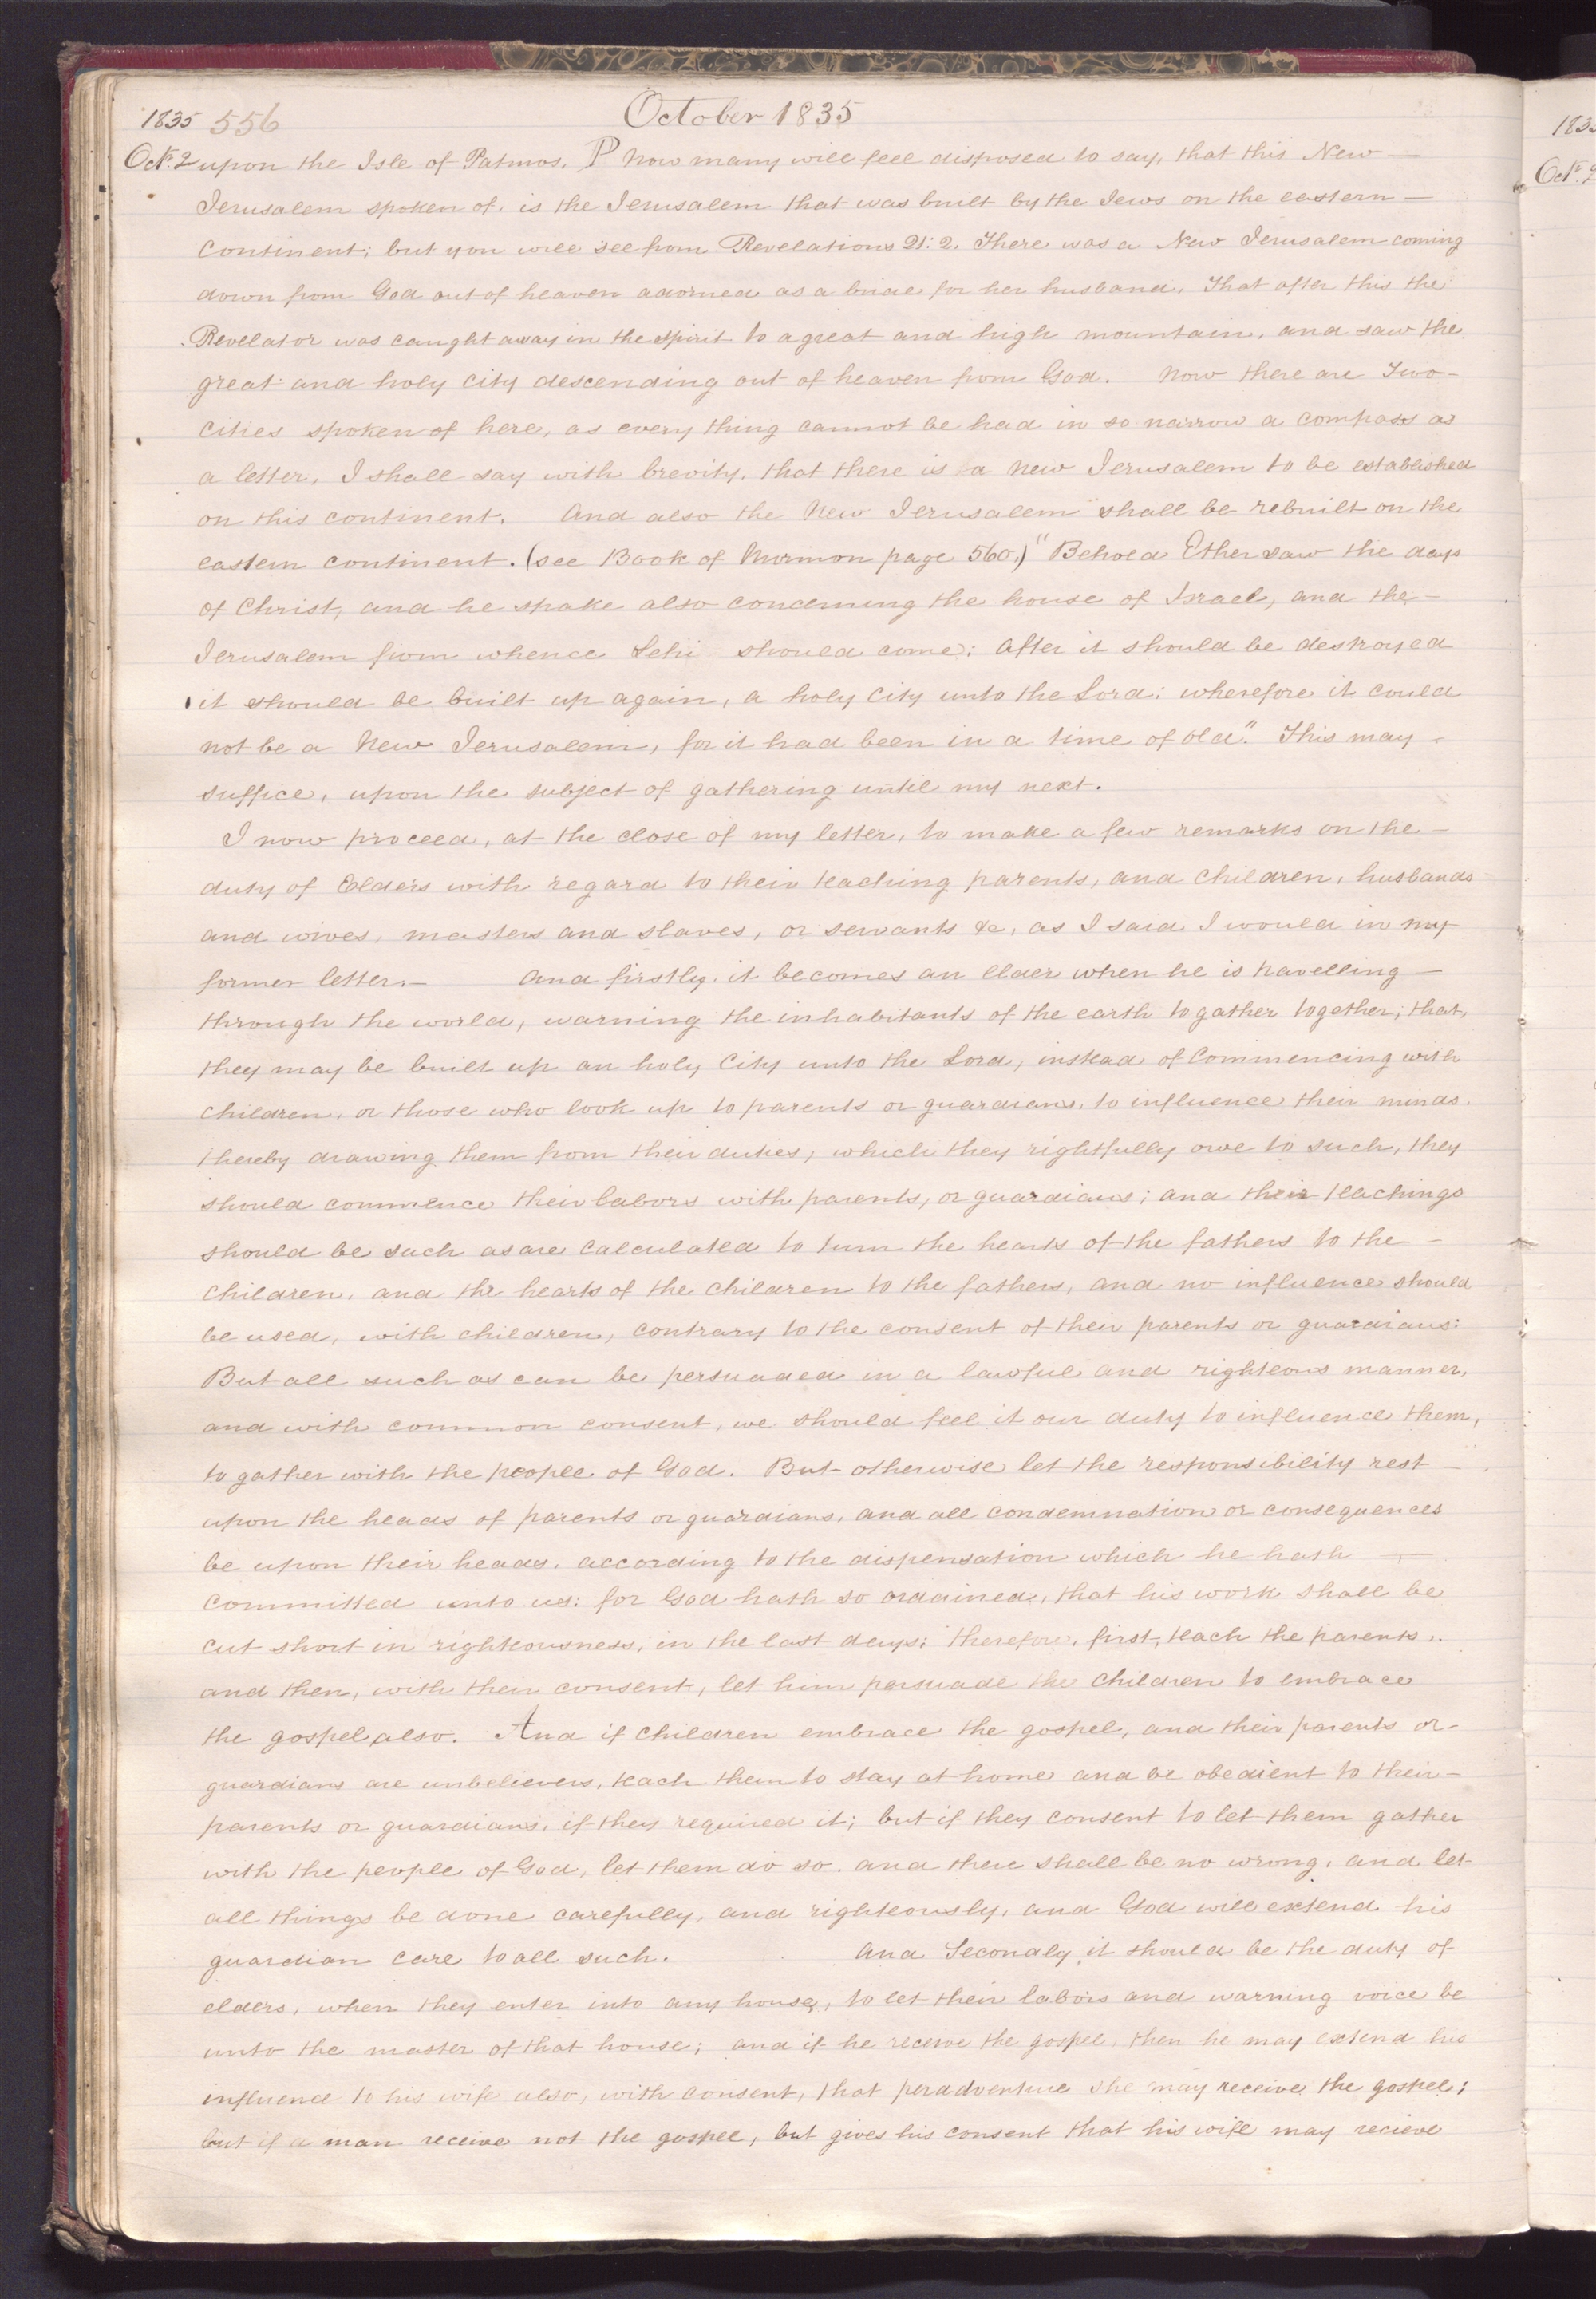 1835 556 October 1835
Oct. 2 upon the Isle of Patmos. P Now many will feel disposed to say, that this New —
Jerusalem spoken of, is the Jerusalem that was built by the Jews on the eastern —
Continent; but you will see from Revelations 21: 2. There was a New Jerusalem coming
down from God out of heaven adorned as a bride for her husband. That after this the
Revelator was caught away in the spirit to a great and high mountain, and saw the
great and holy city descending out of heaven from God. Now there are Two-
Cities spoken of here, as every thing cannot be had in so narrow a compass as
a letter, I shall say with brevity, that there is a New Jerusalem to be established
on this continent. And also the New Jerusalem shall be rebuilt on the
eastern continent. (see Book of Mormon page 560.) "Behold Ether saw the days
of Christ, and he spake also concerning the house of Israel, and the —
Jerusalem from whence Lehi should come; After it should be destroyed
it should be built up again, a holy City unto the Lord: wherefore it could
not be a New Jerusalem, for it had been in a time of old." This may -
suffice, upon the subject of gathering until my next.
I now proceed, at the close of my letter, to make a few remarks on the —
duty of Elders with regard to their teaching parents, and children, husbands
and wives, masters and slaves, or servants &c, as I said I would in my
former letter. — And firstly, it becomes an elder when he is travelling —
through the world, warning the inhabitants of the earth to gather together, that,
they may be built up an holy City unto the Lord, instead of Commencing with
children, or those who look up to parents or guardians, to influence their minds.
thereby drawing them from their duties, which they rightfully owe to such, they
should commence their labors with parents, or guardians; and their teachings
should be such as are calculated to turn the hearts of the fathers to the —
children, and the hearts of the children to the fathers, and no influence should
be used, with children, contrary to the consent of their parents or guardians:
But all such as can be persuaded in a lawful and righteous manner,
and with common consent, we should feel it our duty to influence them,
to gather with the people of God. But otherwise let the responsibility rest —
upon the heads of parents or guardians, and all condemnation or consequences
be upon their heads, according to the dispensation which he hath —
committed unto us: for God hath so ordained, that his work shall be
cut short in righteousness, in the last days; therefore, first, teach the parents,
and then, with their consent, let him persuade the children to embrace
the gospel also. And if children embrace the gospel, and their parents or-
guardians are unbelievers, teach them to stay at home and be obedient to their —
parents or guardians, if they required it; but if they consent to let them gather
with the people of God, let them do so. and there shall be no wrong, and let
all things be done carefully, and righteously, and God will extend his
guardian care to all such. And Secondly, it should be the duty of
elders, when they enter into any house, to let their labors and warning voice be
unto the master of that house; and if he receive the gospel, then he may extend his
influence to his wife also, with consent, that peradventure she may receive the gospel;
but if a man receive not the gospel, but gives his consent that his wife may recieve
183
Oct. 2